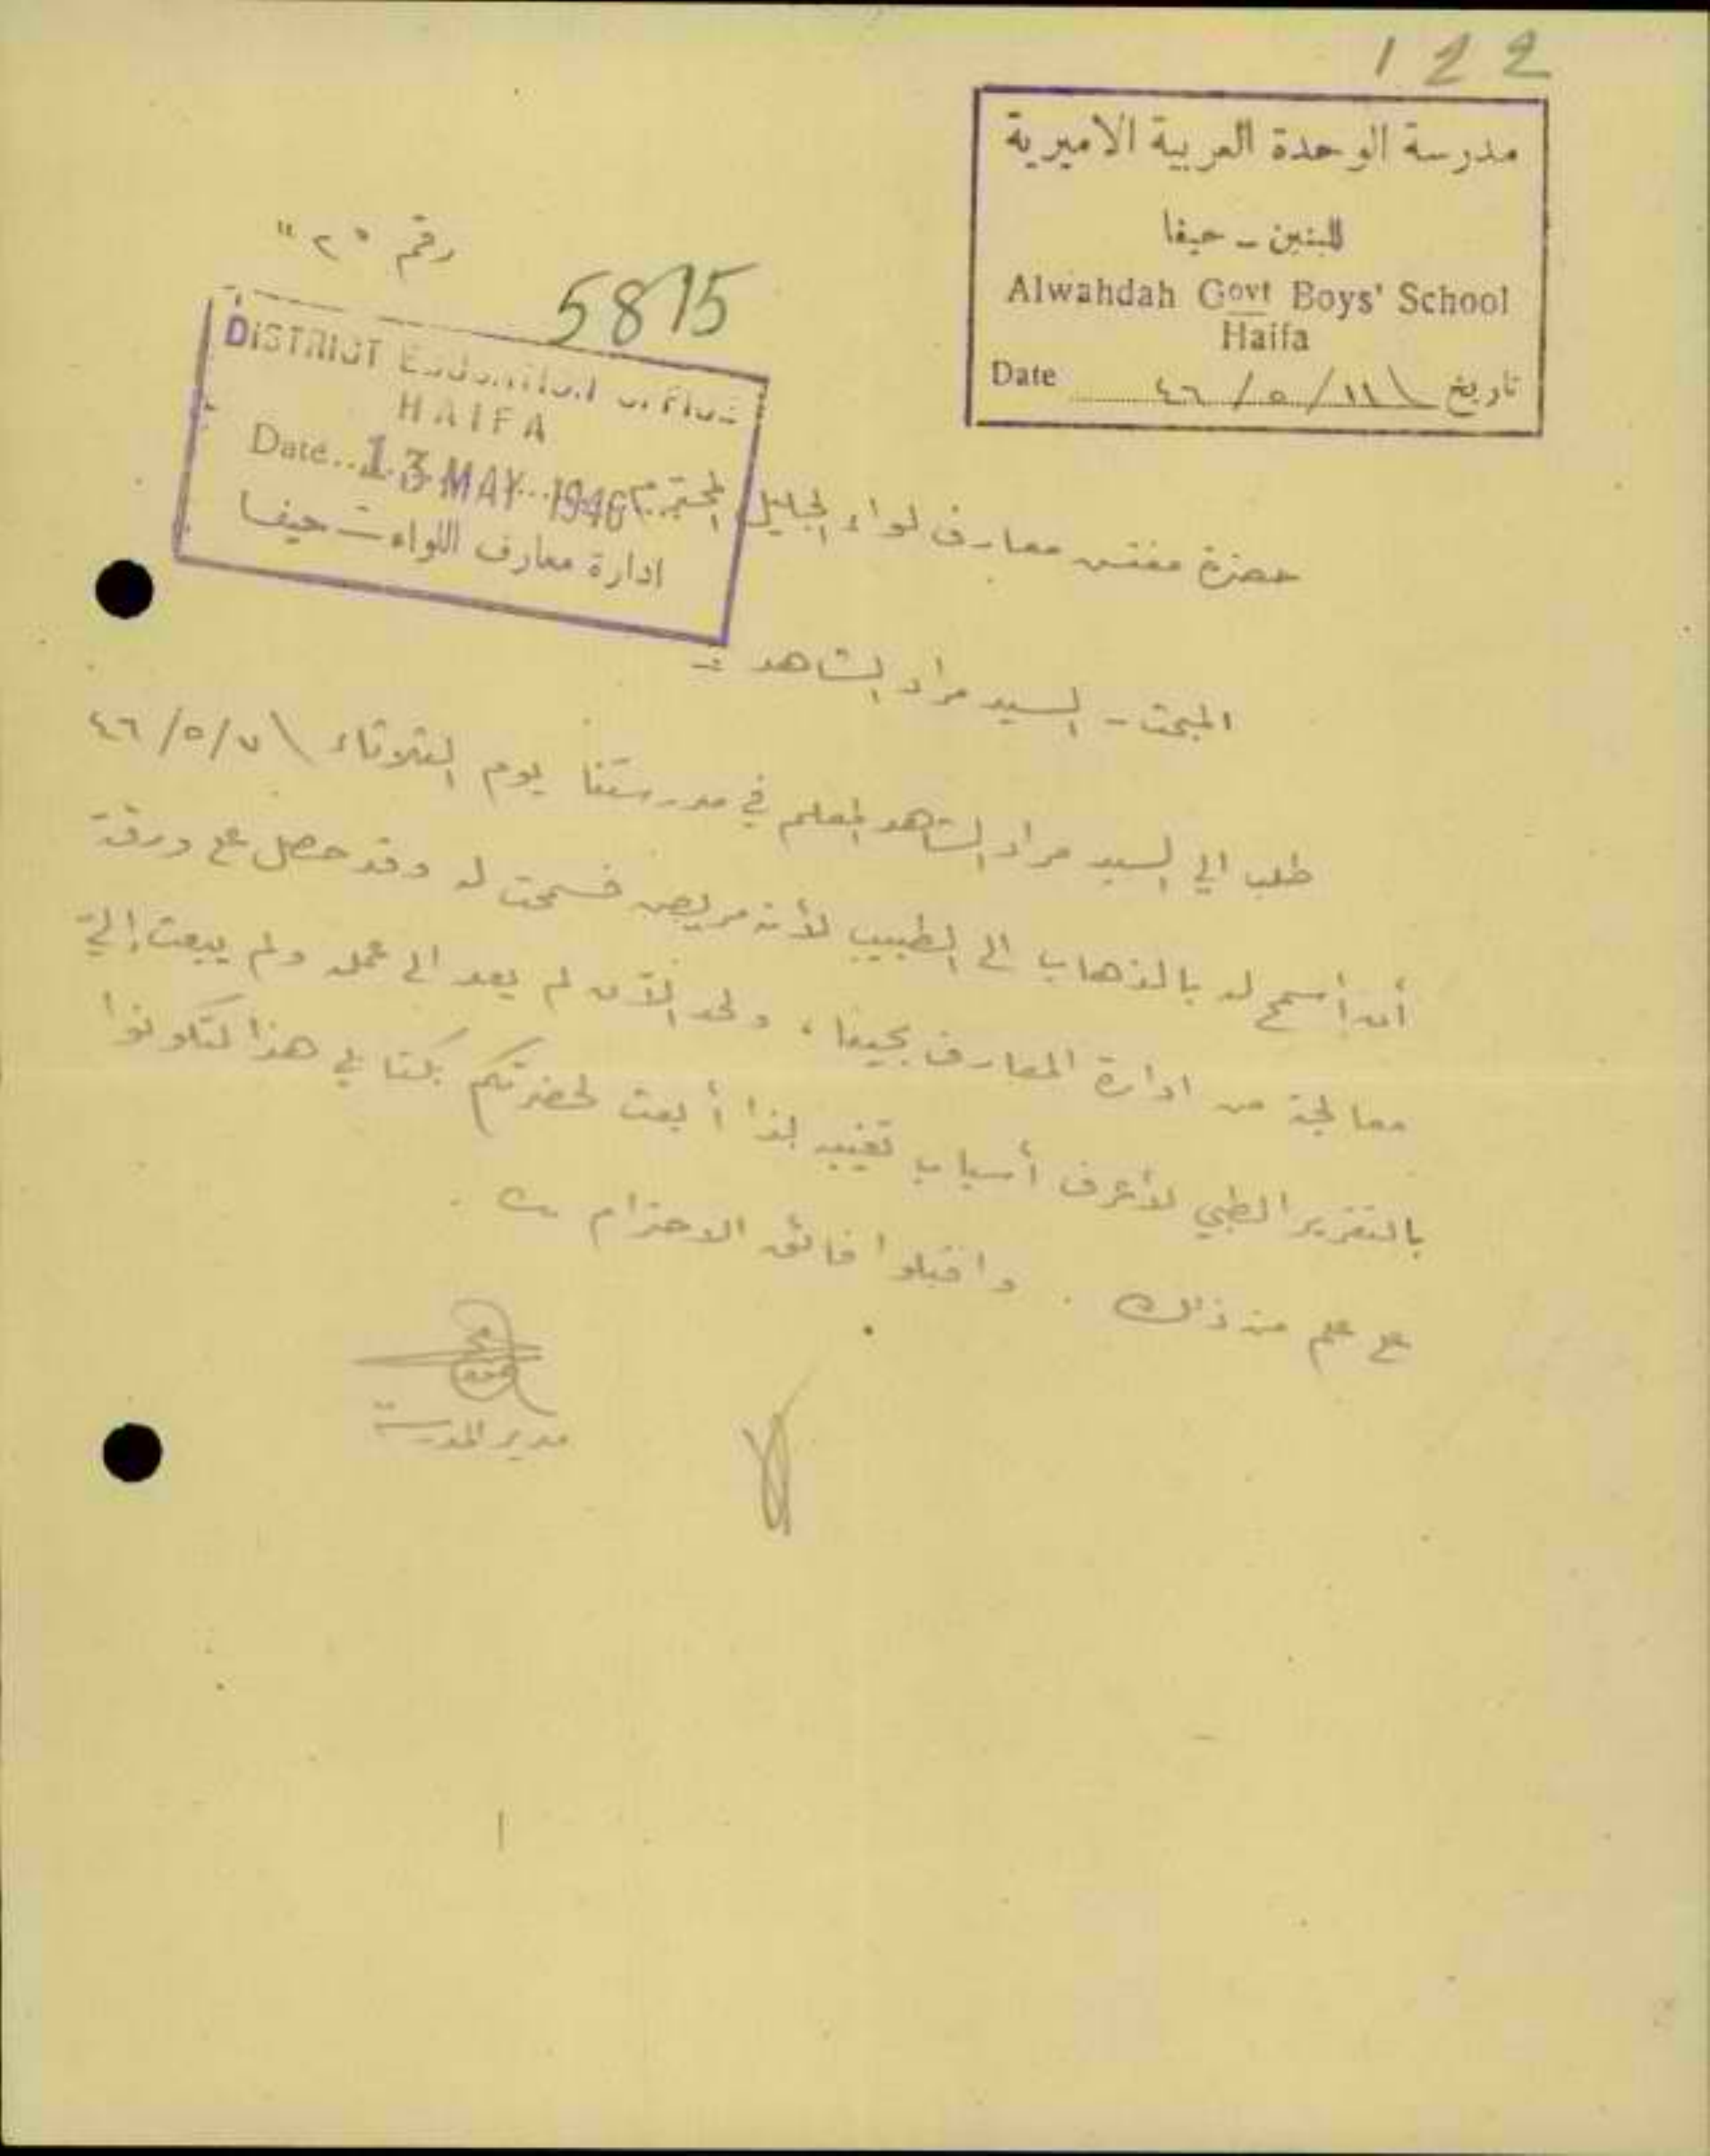 122
مدرسة الوحدة العربية الاميرية
للبنين - حيفا
Alwahdah Govt Boys' School
Haifa
Date ٤٦/٥/١١ \ تاريخ
رقم "٢"
5815
DISTRICT
HAIFA
Date..13 MAY 1946
ادارة معارف اللواء - حيفا
حضرة مفتش معارف لواء الجليل المحترم
المبحث - السيد مراد الشاهد :-
طلب الي السيد مراد الشاهد المعلم في مدرستنا يوم الثلاثاء \ ٤٦/٥/٧
أن أسمح له بالذهاب الى الطبيب لأنه مريض فسمحت له وقد حصل على ورقة
معالجة من ادارة المعارف بحيفا ، ولحد الآن لم يعد الى عمله ولم يبعث إليّ
بالتقرير الطبي لأعرف أسباب تغيبه لذا أبعث لحضرتكم بكتابي هذا لتكونوا
على علم من ذلك . واقبلوا فائق الاحترام
مدير المدرسة